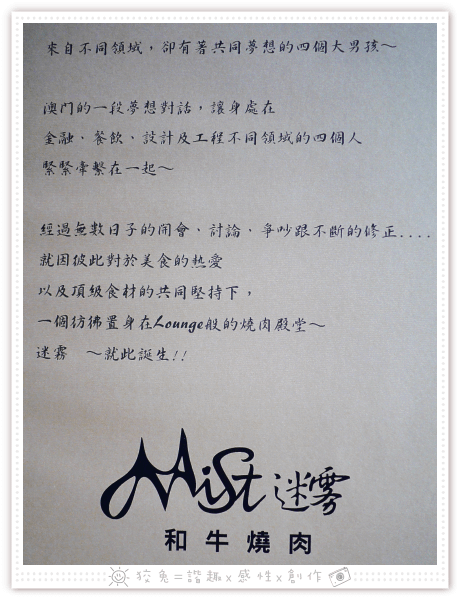 來自不同領域，卻有著共同夢想的四個大男孩～
澳門的一段夢想對話，讓身處在
金融、餐飲、設計及工程不同領域的四個人
緊緊牽繫在一起～
經過無數日子的開會、討論、爭吵跟不斷的修正....
就因彼此對於美食的熱愛
以及頂級食材的共同堅持下，
一個彷彿置身在Lounge般的燒肉殿堂～
迷霧　～就此誕生!!
Mist 迷霧
和牛燒肉
狡兔=諧趣x感性x創作